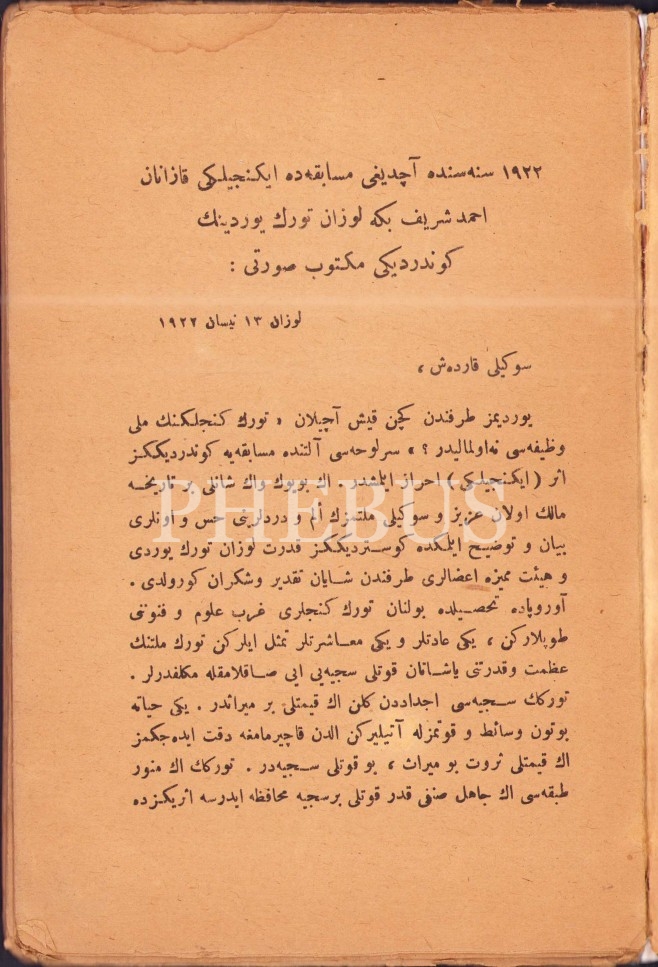 ١٩٢٢ سنه‌سنده آچديغی مسابقه‌ده ايكنجيلكی قازانان
احمد شريف بكه لوزان تورك يوردينك
كوندرديكی مكتوب صورتی :
لوزان ١٣ نيسان ١٩٢٢
سوكيلی قارده‌ش ،
يورديمز طرفندن كچن قيش آچيلان « تورك كنجلكنك ملی
وظيفه‌سی نه‌اولماليدر ؟ » سرلوحه‌سی آلتنده مسابقه‌يه كوندرديككز
اثر ( ايكنجيلكی ) احراز ايتمشدر . اك بويوك واك شانلی بر تاريخه
مالك اولان عزيز و سوكيلی ملتمزك ألم و دردلرينی حس و اونلری
بيان و توضيح ايلكده كوسترديككز قدرت لوزان تورك يوردی
و هيئت مميزه اعضالری طرفندن شايان تقدير وشكران كورولدی .
آوروپاده تحصيلده بولنان تورك كنجلری غرب علوم و فنوننی
طوپلاركن ، يكی عادتلر و يكی معاشرتلر تمثل ايلركن تورك ملتنك
عظمت وقدرتنی ياشاتان قوتلی سجيه‌يی ايی صاقلامقله مكلفدرلر .
توركك سجيه‌سی اجداددن كلن اك قيمتلی بر ميراثدر . يكی حياته
بوتون وسائط و قوتمزله آتيليركن الدن قاچيرمامغه دقت ايده‌جكمز
اك قيمتلی ثروت بو ميراث ، بو قوتلی سجيه‌در . توركك اك منور
طبقه‌سی اك جاهل صنفی قدر قوتلی برسجيه محافظه ايدرسه اثريكزده
PHEBUS